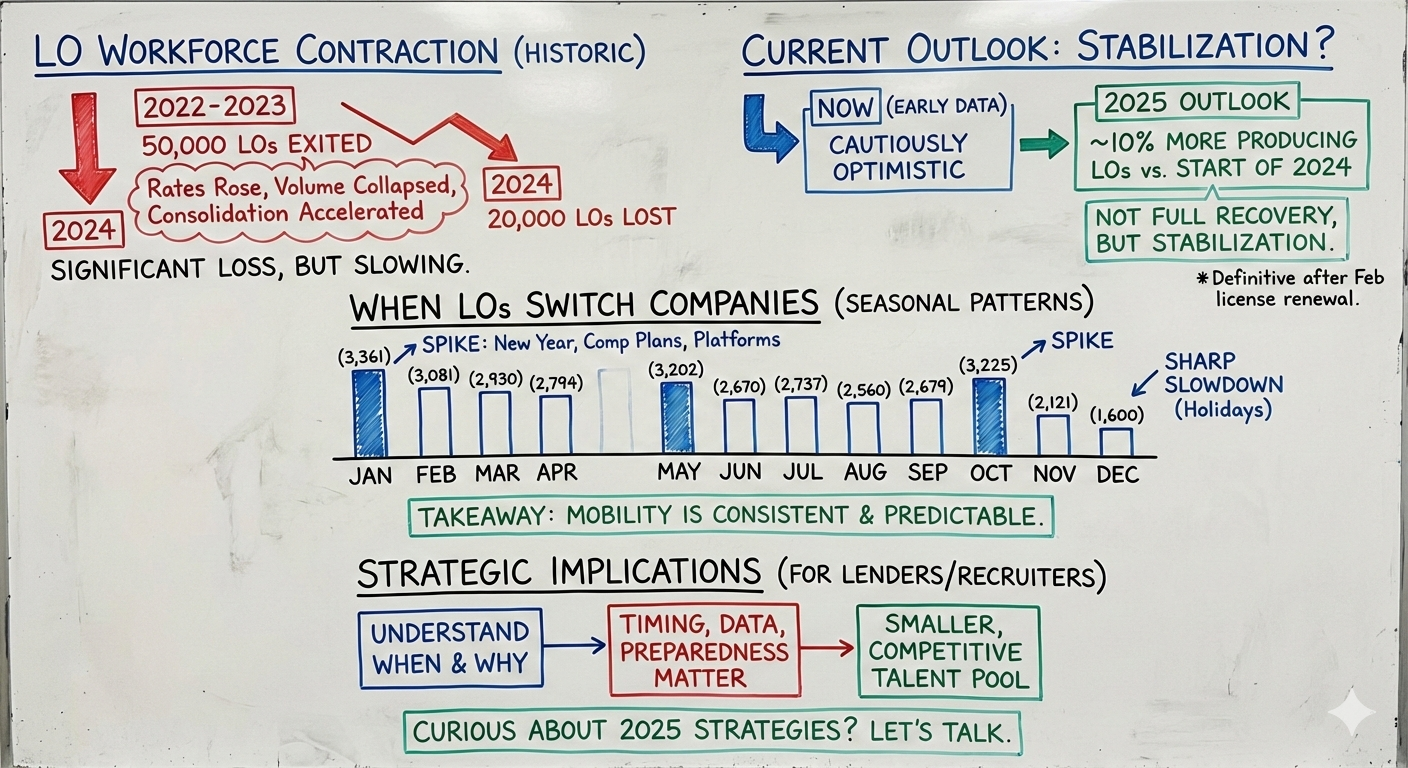 LO WORKFORCE CONTRACTION (HISTORIC)
2022-2023
50,000 LOs EXITED
Rates Rose, Volume Collapsed,
Consolidation Accelerated
2024
SIGNIFICANT LOSS, BUT SLOWING.
2024
20,000 LOs LOST
CURRENT OUTLOOK: STABILIZATION?
NOW (EARLY DATA)
CAUTIOUSLY
OPTIMISTIC
2025 OUTLOOK
~10% MORE PRODUCING
LOs vs. START OF 2024
NOT FULL RECOVERY,
BUT STABILIZATION.
*Definitive after Feb
license renewal.
WHEN LOs SWITCH COMPANIES (SEASONAL PATTERNS)
SPIKE: New Year, Comp Plans, Platforms
SPIKE
SHARP
SLOWDOWN
(Holidays)
(3,361) (3,081) (2,930) (2,794) (3,202) (2,670) (2,737) (2,560) (2,679) (3,225) (2,121) (1,600)
JAN FEB MAR APR MAY JUN JUL AUG SEP OCT NOV DEC
TAKEAWAY: MOBILITY IS CONSISTENT & PREDICTABLE.
STRATEGIC IMPLICATIONS (FOR LENDERS/RECRUITERS)
UNDERSTAND
WHEN & WHY
TIMING, DATA,
PREPAREDNESS
MATTER
SMALLER,
COMPETITIVE
TALENT POOL
CURIOUS ABOUT 2025 STRATEGIES? LET'S TALK.